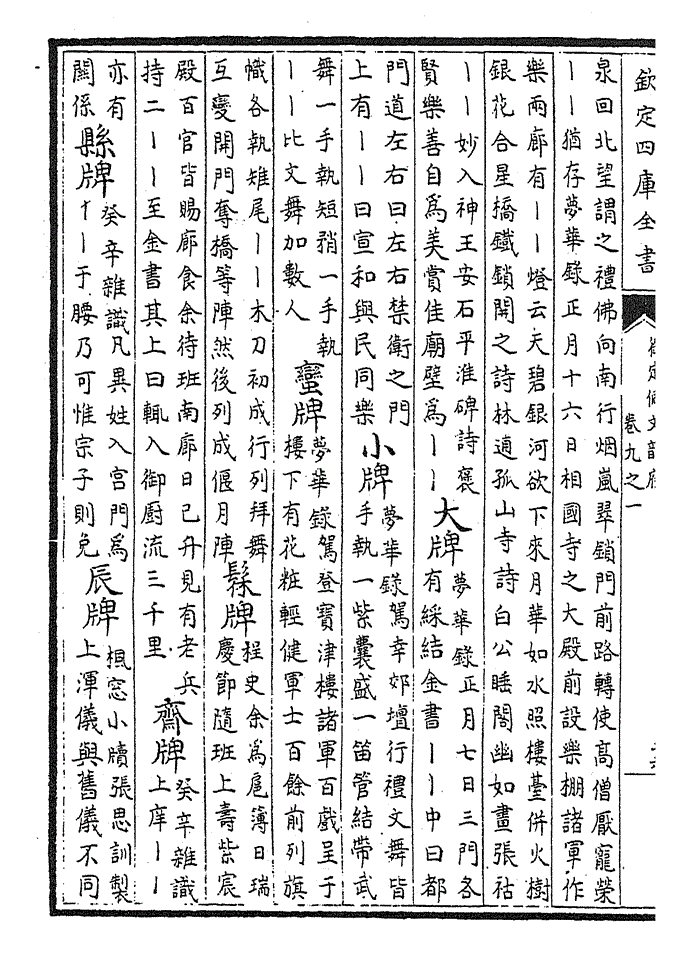 欽定四庫全書
卷九之一
泉回北望謂之禮佛向南行烟嵐翠鎖門前路轉使高僧厭寵榮
丨丨猶存夢華錄正月十六日相國寺之大殿前設樂棚諸軍作
樂兩廊有丨丨燈云天碧銀河欲下來月華如水照樓臺併火樹
銀花合星橋鐵鎖開之詩林逋孤山寺詩白公睡閣幽如畫張祜
丨丨妙入神王安石平淮碑詩褒
賢樂善自爲美賞佳廟壁爲丨丨
大牌
夢華錄正月七日三門各
有綵結金書丨丨中曰都
門道左右曰左右禁衛之門
上有丨丨曰宣和與民同樂
小牌
夢華錄駕幸郊壇行禮文舞皆
手執一紫囊盛一笛管結帶武
舞一手執短矟一手執
丨丨比文舞加數人
蠻牌
夢華錄駕登寶津樓諸軍百戲呈于
樓下有花粧輕健軍士百餘前列旗
幟各執雉尾丨丨木刀初成行列拜舞
互變開門奪橋等陣然後列成偃月陣
髹牌
桯史余爲扈簿日瑞
慶節隨班上壽紫宸
殿百官皆賜廊食余待班南廊日已升見有老兵
持二丨丨至金書其上曰輒入御廚流三千里
齋牌
癸辛雜識
上庠丨丨
亦有
關係
縣牌
癸辛雜識凡異姓入宫門爲
丨丨于腰乃可惟宗子則免
辰牌
楓窓小牘張思訓製
上渾儀與舊儀不同